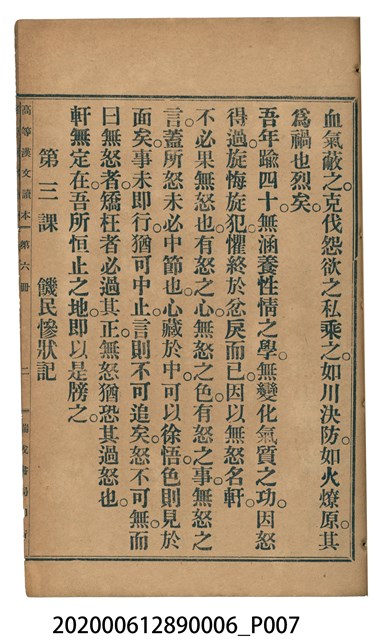 血氣蔽之。克伐怨欲之私乘之。如川決防。如火燎原。其
爲禍也烈矣。
吾年踰四十。無涵養性情之學。無變化氣質之功。因怒
得過。旋悔旋犯。懼終於忿戾而已。因以無怒名軒。
不必果無怒也。有怒之心。無怒之色。有怒之事。無怒之
言。蓋所怒未必中節也。心藏於中。可以徐悟。色則見於
面矣。事未即行。猶可中止。言則不可追矣。怒不可無。而
曰無怒者。矯枉者必過其正。無怒猶恐其過怒也。
軒無定在。吾所恒止之地。即以是牓之。
第三課　饑民慘狀記
高等漢文讀本　第六冊　二
202000612890006_P007